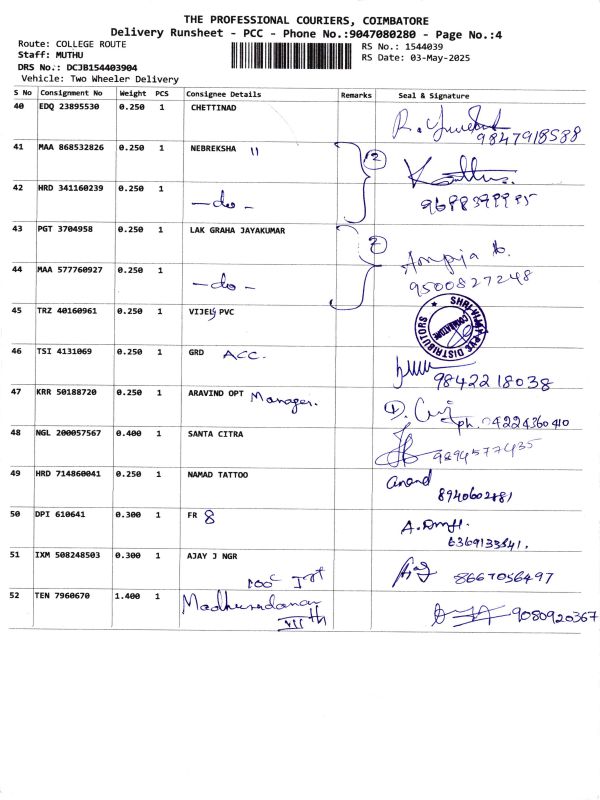 THE PROFESSIONAL COURIERS, COIMBATORE
Delivery Runsheet - PCC - Phone No.:9047080280 - Page No.:4
Route: COLLEGE ROUTE
Staff: MUTHU
DRS No.: DCJB154403904
Vehicle: Two Wheeler Delivery
RS No.: 1544039
RS Date: 03-May-2025
S No Consignment No Weight PCS Consignee Details Remarks Seal & Signature
40 EDQ 23895530 0.250 1 CHETTINAD
9847918588
41 MAA 868532826 0.250 1 NEBREKSHA 11 2
42 HRD 341160239 0.250 1 -do-
43 PGT 3704958 0.250 1 LAK GRAHA JAYAKUMAR 2
44 MAA 577760927 0.250 1 -do- 9500827248
45 TRZ 40160961 0.250 1 VIJELY PVC DISTRIBUTORS COIMBATORE
46 TSI 4131069 0.250 1 GRD ACC. 9842218038
47 KRR 50188720 0.250 1 ARAVIND OPT Manager. ph. 04224360410
48 NGL 200057567 0.400 1 SANTA CITRA 9894577435
49 HRD 714860041 0.250 1 NAMAD TATTOO Anand
8940602481
50 DPI 610641 0.300 1 FR 8
6369133541.
51 IXM 508248503 0.300 1 AJAY J NGR 8667056497
52 TEN 7960670 1.400 1 Madhusudanan 9080920367